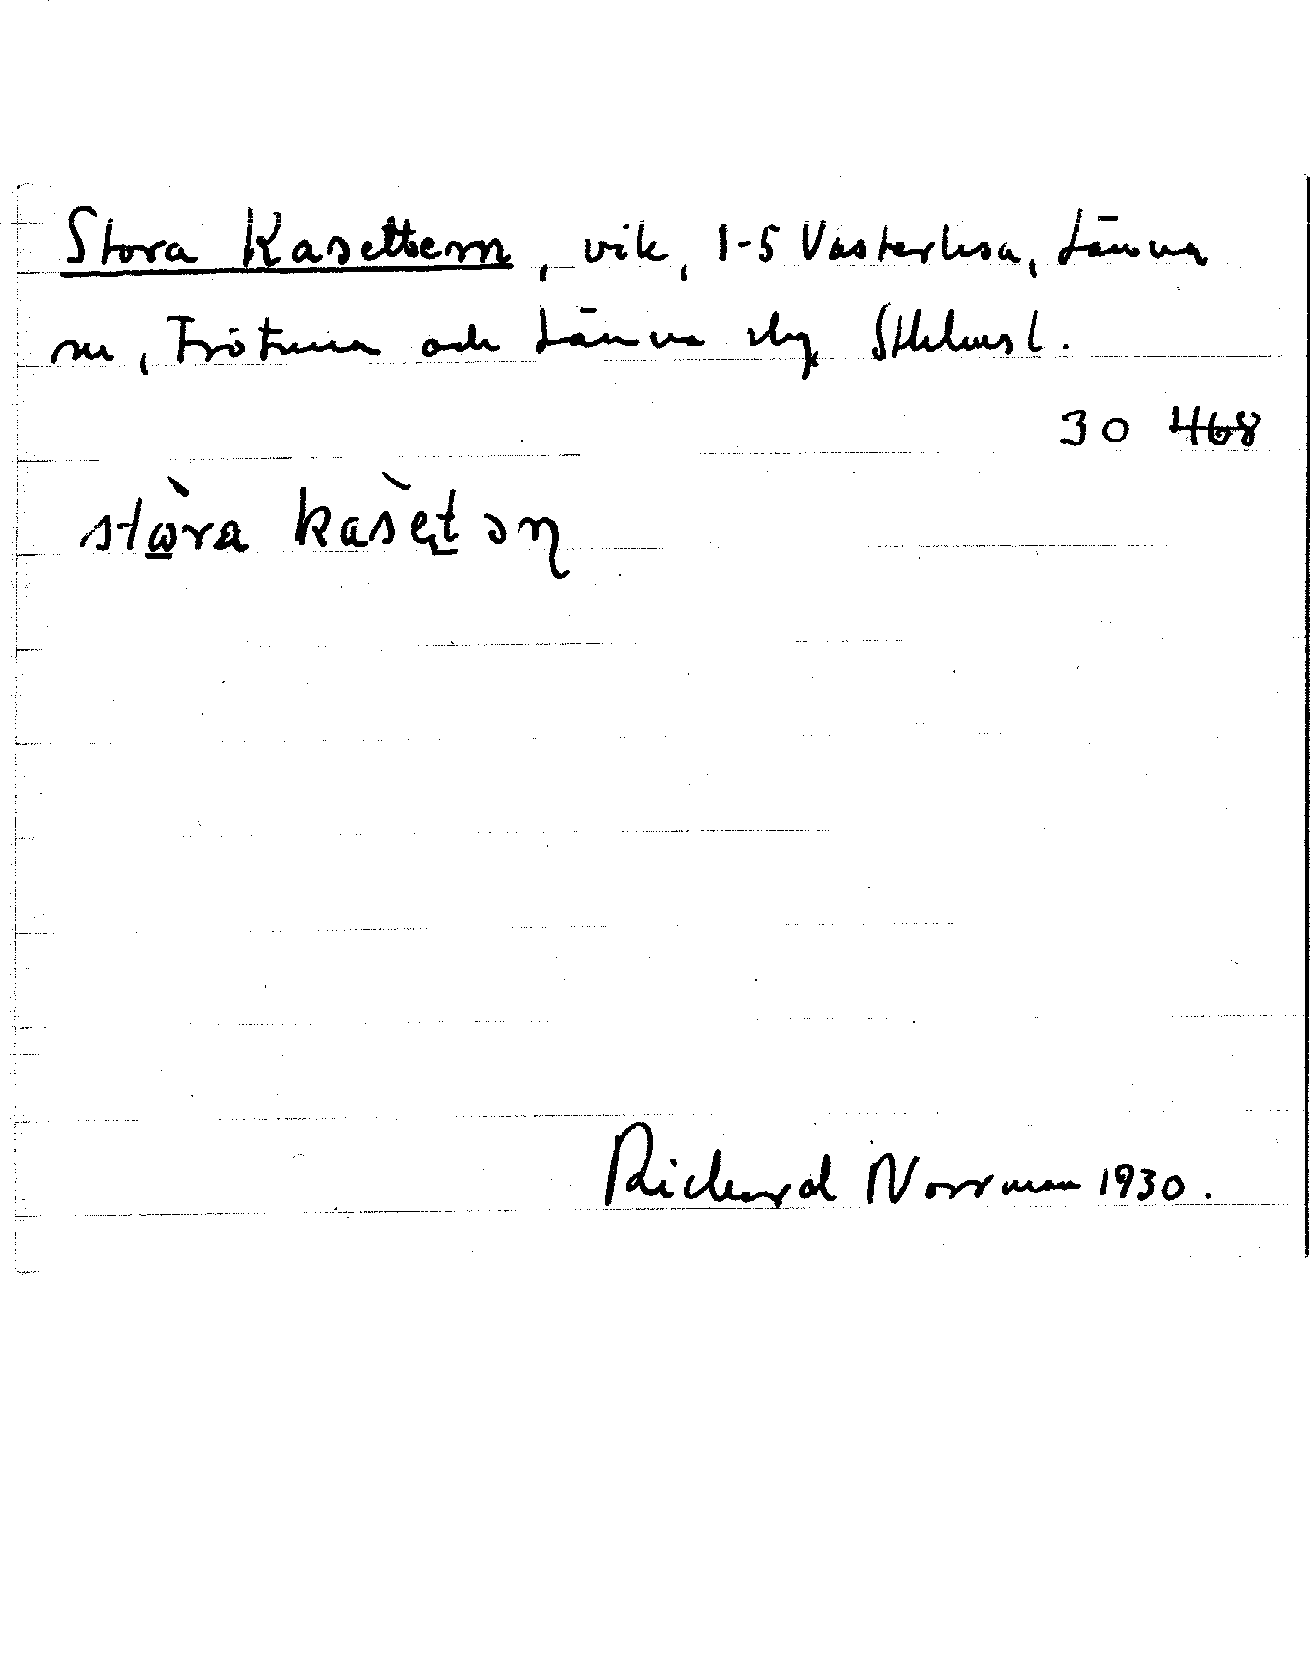 Stora Kasettern, vik, 1-5 Västerlisa, Länna
sn, Frötuna och Länna slg Sthlmsl.
30 468
stòra kasètəɳ
Richard Norrman 1930.